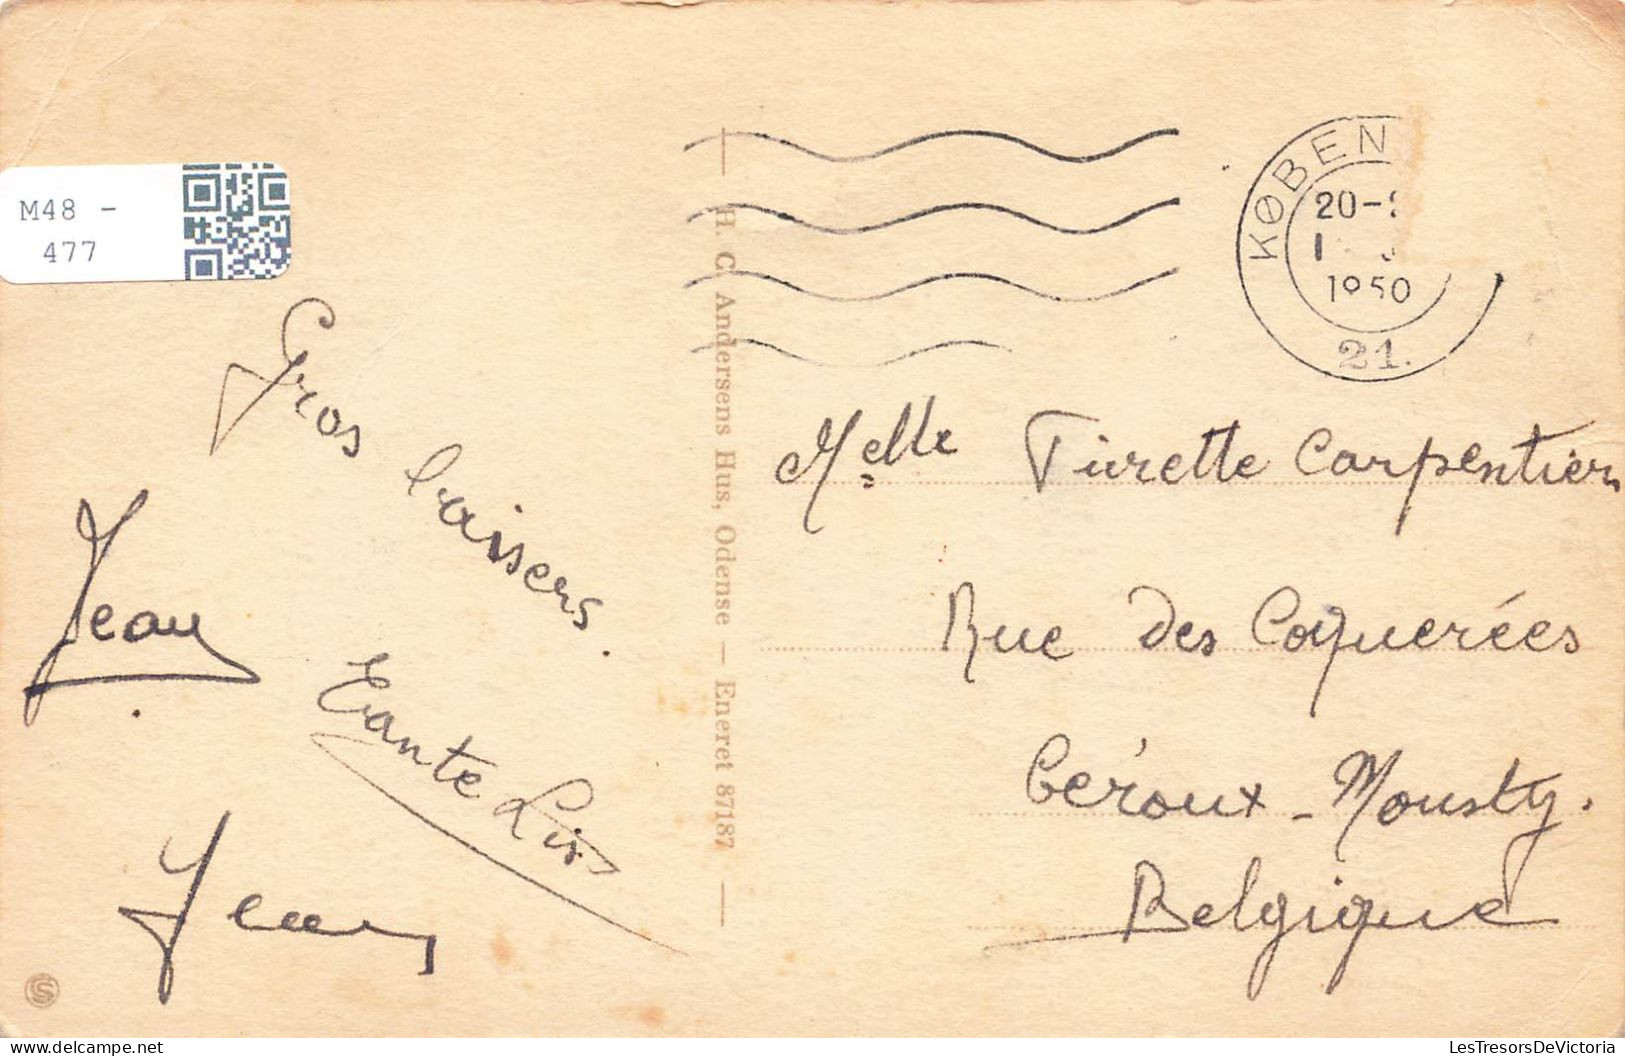 M48 -
477
KØBEN
20-
1950
21.
H. C. Andersens Hus, Odense — Eneret 87187
Gros baisers.
Jean
Tante Lis
Jean
Melle Turette Carpentier
Rue des Coquerées
Céroux - Mousty.
Belgique
LesTresorsDeVictoria
www.delcampe.net